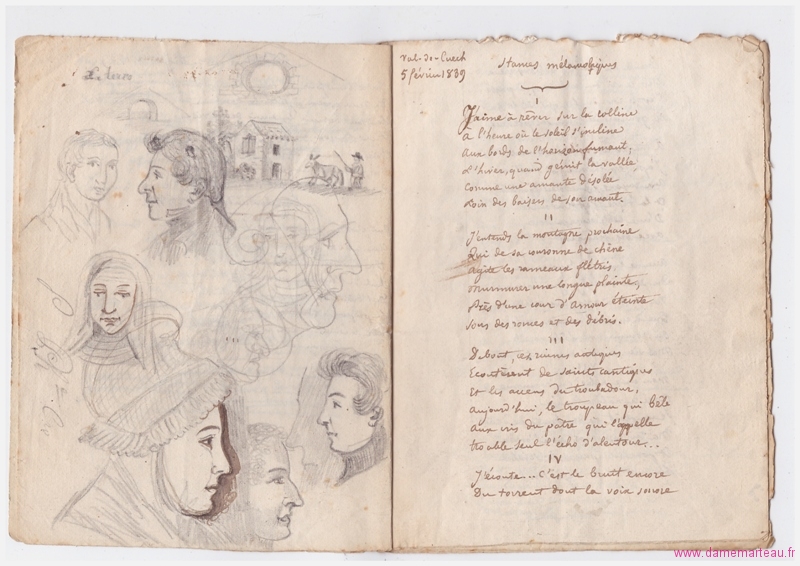 Val-de-Cuech
5 février 1839
Stances mélancoliques
I
J'aime à rêver sur la colline
à l'heure où le soleil s'incline
aux bords de l'horizon fumant;
L'hiver, quand gémit la vallée
comme une amante désolée
Loin des baisers de son amant.
II
J'entends la montagne prochaine
Qui de sa couronne de chêne
agite les rameaux flétris,
Murmurer une longue plainte,
Près d'une cour d'amour éteinte
sous des ronces et des débris.
III
Debout, ces ruines antiques
Ecoutèrent de saints cantiques
Et les accens du troubadour,
aujourd'hui, le troupeau qui bêle
aux cris du pâtre qui l'appelle
trouble seul l'écho d'alentour...
IV
J'écoute.. C'est le bruit encore
Du torrent dont la voix sonore
www.damemarteau.fr